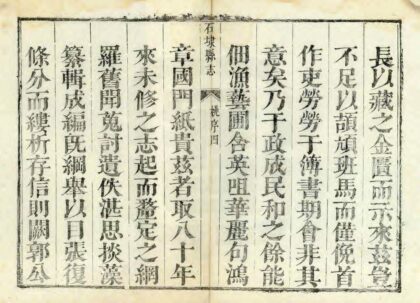 長以藏之金匱而示來茲豈
不足以頡頏班馬而僃俛首
作吏勞勞于簿書期會非其
意矣乃于政成民和之餘能
佃漁藝圃含英咀華麗句鴻
石埭縣志
舊序四
章國門紙貴茲者取八十年
來未修之志起而釐定之網
羅舊聞蒐討遺佚湛思掞藻
纂輯成編旣綱舉以目張復
條分而縷析存信則闕郭公